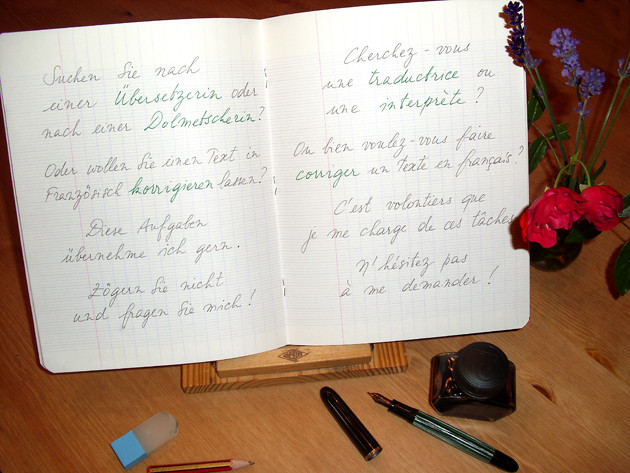 Suchen Sie nach
einer Übersetzerin oder
nach einer Dolmetscherin?
Oder wollen Sie einen Text in
Französisch korrigieren lassen?
Diese Aufgaben
übernehme ich gern.
Zögern Sie nicht
und fragen Sie mich!
Cherchez-vous
une traductrice ou
une interprète ?
Ou bien voulez-vous faire
corriger un texte en français ?
C'est volontiers que
je me charge de ces tâches
N'hésitez pas
à me demander !